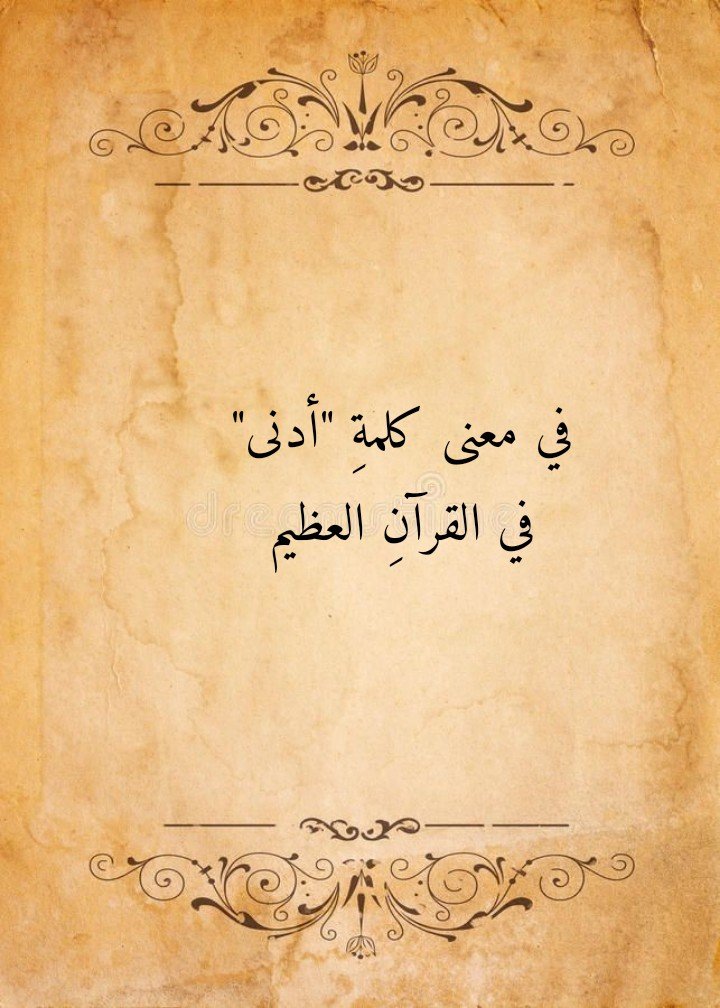 في معنى كلمةِ "أدنى"
في القرآنِ العظيم